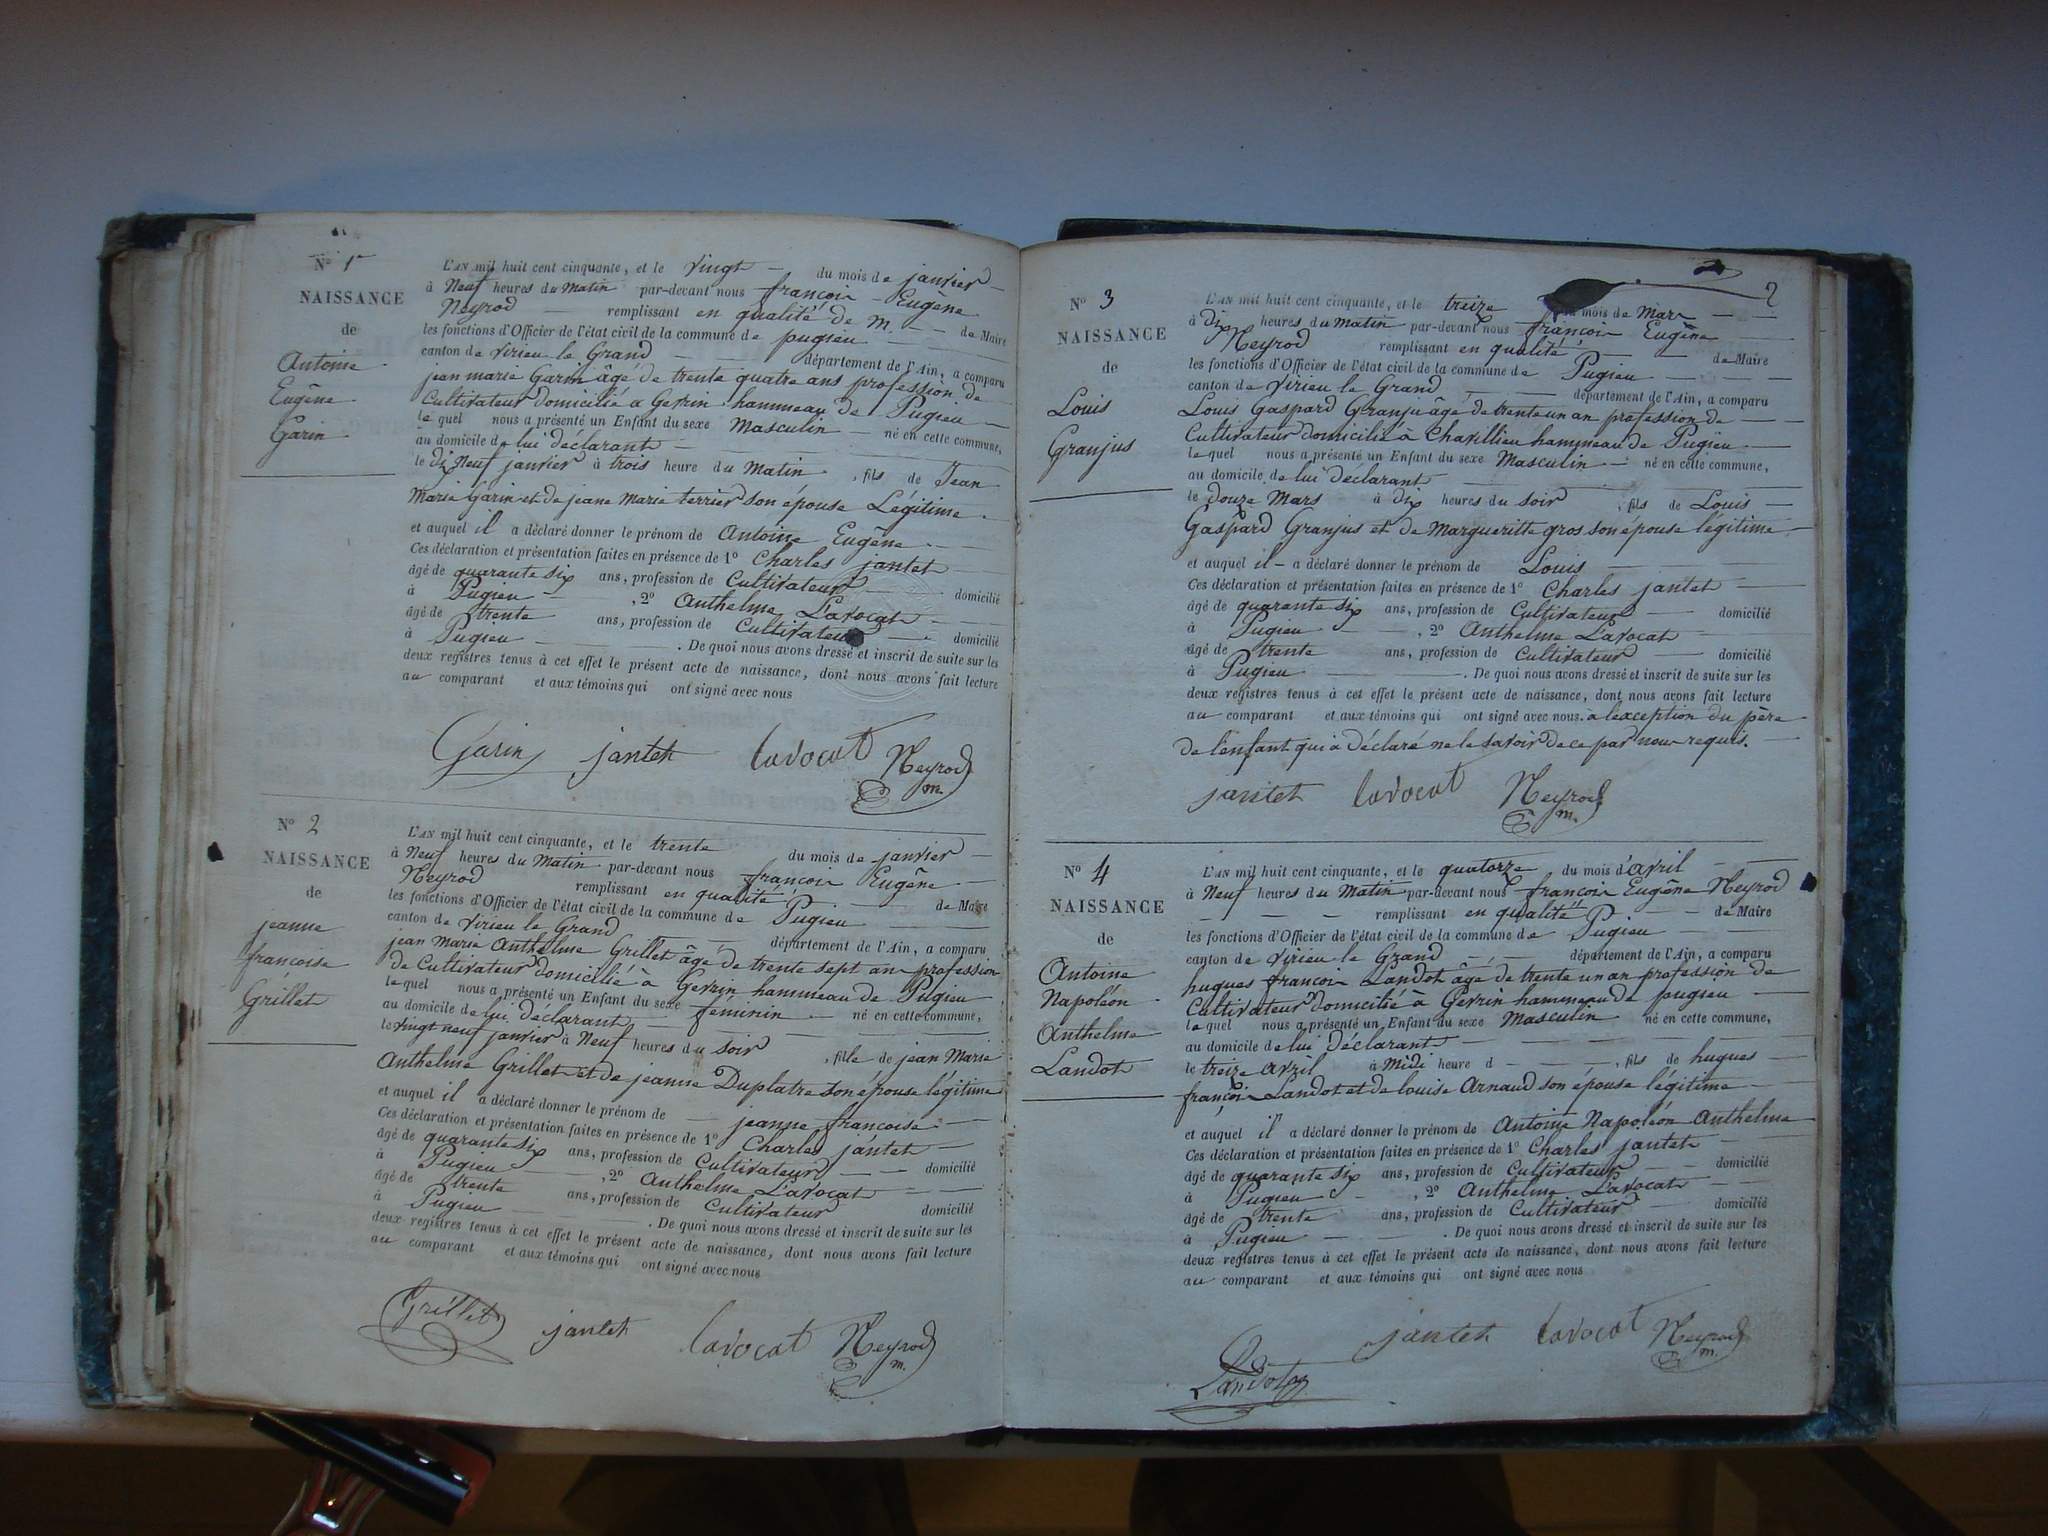 Nº 1er
NAISSANCE
de
Antoine
Eugêne
Garin
L'AN mil huit cent cinquante, et le vingt du mois de janvier
à Neuf heures du Matin par-devant nous françois Eugêne
Neyrod remplissant en qualité de M. de Maire
les fonctions d'Officier de l'état civil de la commune de pugieu
canton de virieu le Grand département de l'Ain, a comparu
jean marie Garin âgé de trente quatre ans profession de
Cultivateur domicilié a Gevrin hammeau de Pugieu
le quel nous a présenté un Enfant du sexe Masculin né en cette commune,
au domicile de lui déclarant
le dix Neuf janvier à trois heure du Matin, fils de Jean
Marie Garin et de jeane Marie terrier son épouse Légitime
et auquel il a déclaré donner le prénom de Antoine Eugêne
Ces déclaration et présentation faites en présence de 1º Charles jantet
âgé de quarante six ans, profession de Cultivateur domicilié
à Pugieu, 2º Anthelme Lavocat
âgé de trente ans, profession de Cultivateur domicilié
à Pugieu. De quoi nous avons dressé et inscrit de suite sur les
deux registres tenus à cet effet le présent acte de naissance, dont nous avons fait lecture
au comparant et aux témoins qui ont signé avec nous
Garin jantet lavocat Neyrod
m.
Nº 2
NAISSANCE
de
jeanne
francoise
Grillet
L'AN mil huit cent cinquante, et le trente du mois de janvier
à Neuf heures du Matin par-devant nous françois Eugêne
Neyrod remplissant en qualité de Maire
les fonctions d'Officier de l'état civil de la commune de Pugieu
canton de virieu le Grand département de l'Ain, a comparu
jean Marie Anthelme Grillet âgé de trente sept ans profession
de Cultivateur domicilié à Gevrin hammeau de Pugieu
le quel nous a présenté un Enfant du sexe féminin né en cette commune,
au domicile de lui déclarant
le vingt neuf janvier à Neuf heures du soir, fille de jean Marie
Anthelme Grillet et de jeanne Duplatre son épouse légitime
et auquel il a déclaré donner le prénom de jeanne francoise
Ces déclaration et présentation faites en présence de 1º Charles jantet
âgé de quarante six ans, profession de Cultivateur domicilié
à Pugieu, 2º Anthelme Lavocat
âgé de trente ans, profession de Cultivateur domicilié
à Pugieu. De quoi nous avons dressé et inscrit de suite sur les
deux registres tenus à cet effet le présent acte de naissance, dont nous avons fait lecture
au comparant et aux témoins qui ont signé avec nous
Grillet jantet lavocat Neyrod
m.
2
Nº 3
NAISSANCE
de
Louis
Granjus
L'AN mil huit cent cinquante, et le treize du mois de Mars
à dix heures du Matin par-devant nous françois Eugêne
Neyrod remplissant en qualité de Maire
les fonctions d'Officier de l'état civil de la commune de Pugieu
canton de virieu le Grand département de l'Ain, a comparu
Louis Gaspard Granju âgé de trente un an profession de
Cultivateur domicilié à Chavillieu hammeau de Pugieu
le quel nous a présenté un Enfant du sexe Masculin né en cette commune,
au domicile de lui déclarant
le douze Mars à dix heures du soir, fils de Louis
Gaspard Granjus et de Margueritte gros son épouse légitime
et auquel il a déclaré donner le prénom de Louis
Ces déclaration et présentation faites en présence de 1º Charles jantet
âgé de quarante six ans, profession de Cultivateur domicilié
à Pugieu, 2º Anthelme Lavocat
âgé de trente ans, profession de Cultivateur domicilié
à Pugieu. De quoi nous avons dressé et inscrit de suite sur les
deux registres tenus à cet effet le présent acte de naissance, dont nous avons fait lecture
au comparant et aux témoins qui ont signé avec nous. à lexception du père
de l'enfant qui à déclaré ne le savoir de ce par nous requis.
jantet lavocat Neyrod
m.
Nº 4
NAISSANCE
de
Antoine
Napoléon
Anthelme
Landot
L'AN mil huit cent cinquante, et le quatorze du mois d'avril
à Neuf heures du Matin par-devant nous françois Eugêne Neyrod
remplissant en qualité de Maire
les fonctions d'Officier de l'état civil de la commune de Pugieu
canton de virieu le Grand département de l'Ain, a comparu
hugues françois Landot âgé de trente un an profession de
Cultivateur domicilié à Gevrin hammeau de pugieu
le quel nous a présenté un Enfant du sexe Masculin né en cette commune,
au domicile de lui déclarant
le treize avril à Midi heure d, fils de hugues
françois Landot et de louise Arnaud son épouse légitime
et auquel il a déclaré donner le prénom de Antoine Napoléon Anthelme
Ces déclaration et présentation faites en présence de 1º Charles jantet
âgé de quarante six ans, profession de Cultivateur domicilié
à Pugieu, 2º Anthelme Lavocat
âgé de trente ans, profession de Cultivateur domicilié
à Pugieu. De quoi nous avons dressé et inscrit de suite sur les
deux registres tenus à cet effet le présent acte de naissance, dont nous avons fait lecture
au comparant et aux témoins qui ont signé avec nous
jantet lavocat Neyrod
m.
Landot